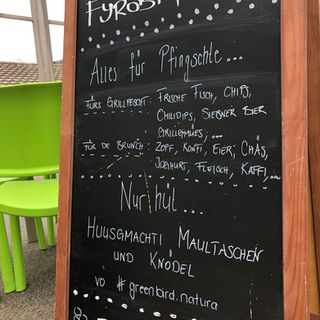 Alles für Pfingschte...
FÜRS GRILLFESCHT: FRISCHE FISCH, CHIPS,
CHILIDIPS, SIEBNER BIER
GRILLGMÜES,...
FÜR DE BRUNCH: ZOPF, KONFI, EIER, CHÄS,
JOGHURT, FLEISCH, KAFFI,...
Nur hüt...
HUUSGMACHTI MAULTASCHEN
UND KNÖDEL
VO #greenbird.natura